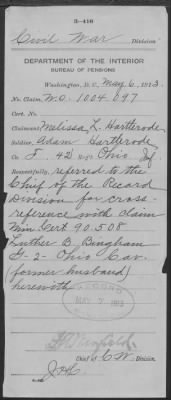 3-416
Civil War Division
DEPARTMENT OF THE INTERIOR
BUREAU OF PENSIONS
Washington, D.C., May 6, 1913.
No. Claim, W.O. 1004 097
Cert. No.
Claimant, Melissa L. Hartterode
Soldier, Adam Hartterode
Co. F. 42 Reg't Ohio Inf
Respectfully, referred to the
Chief of the Record
Division for cross-
reference with claim
Min. Cert 90.508
Luther B. Bingham
G-2- Ohio Cav.
(former husband)
herewith
RECORD
MAY 7 1913
Chief of C W Division.